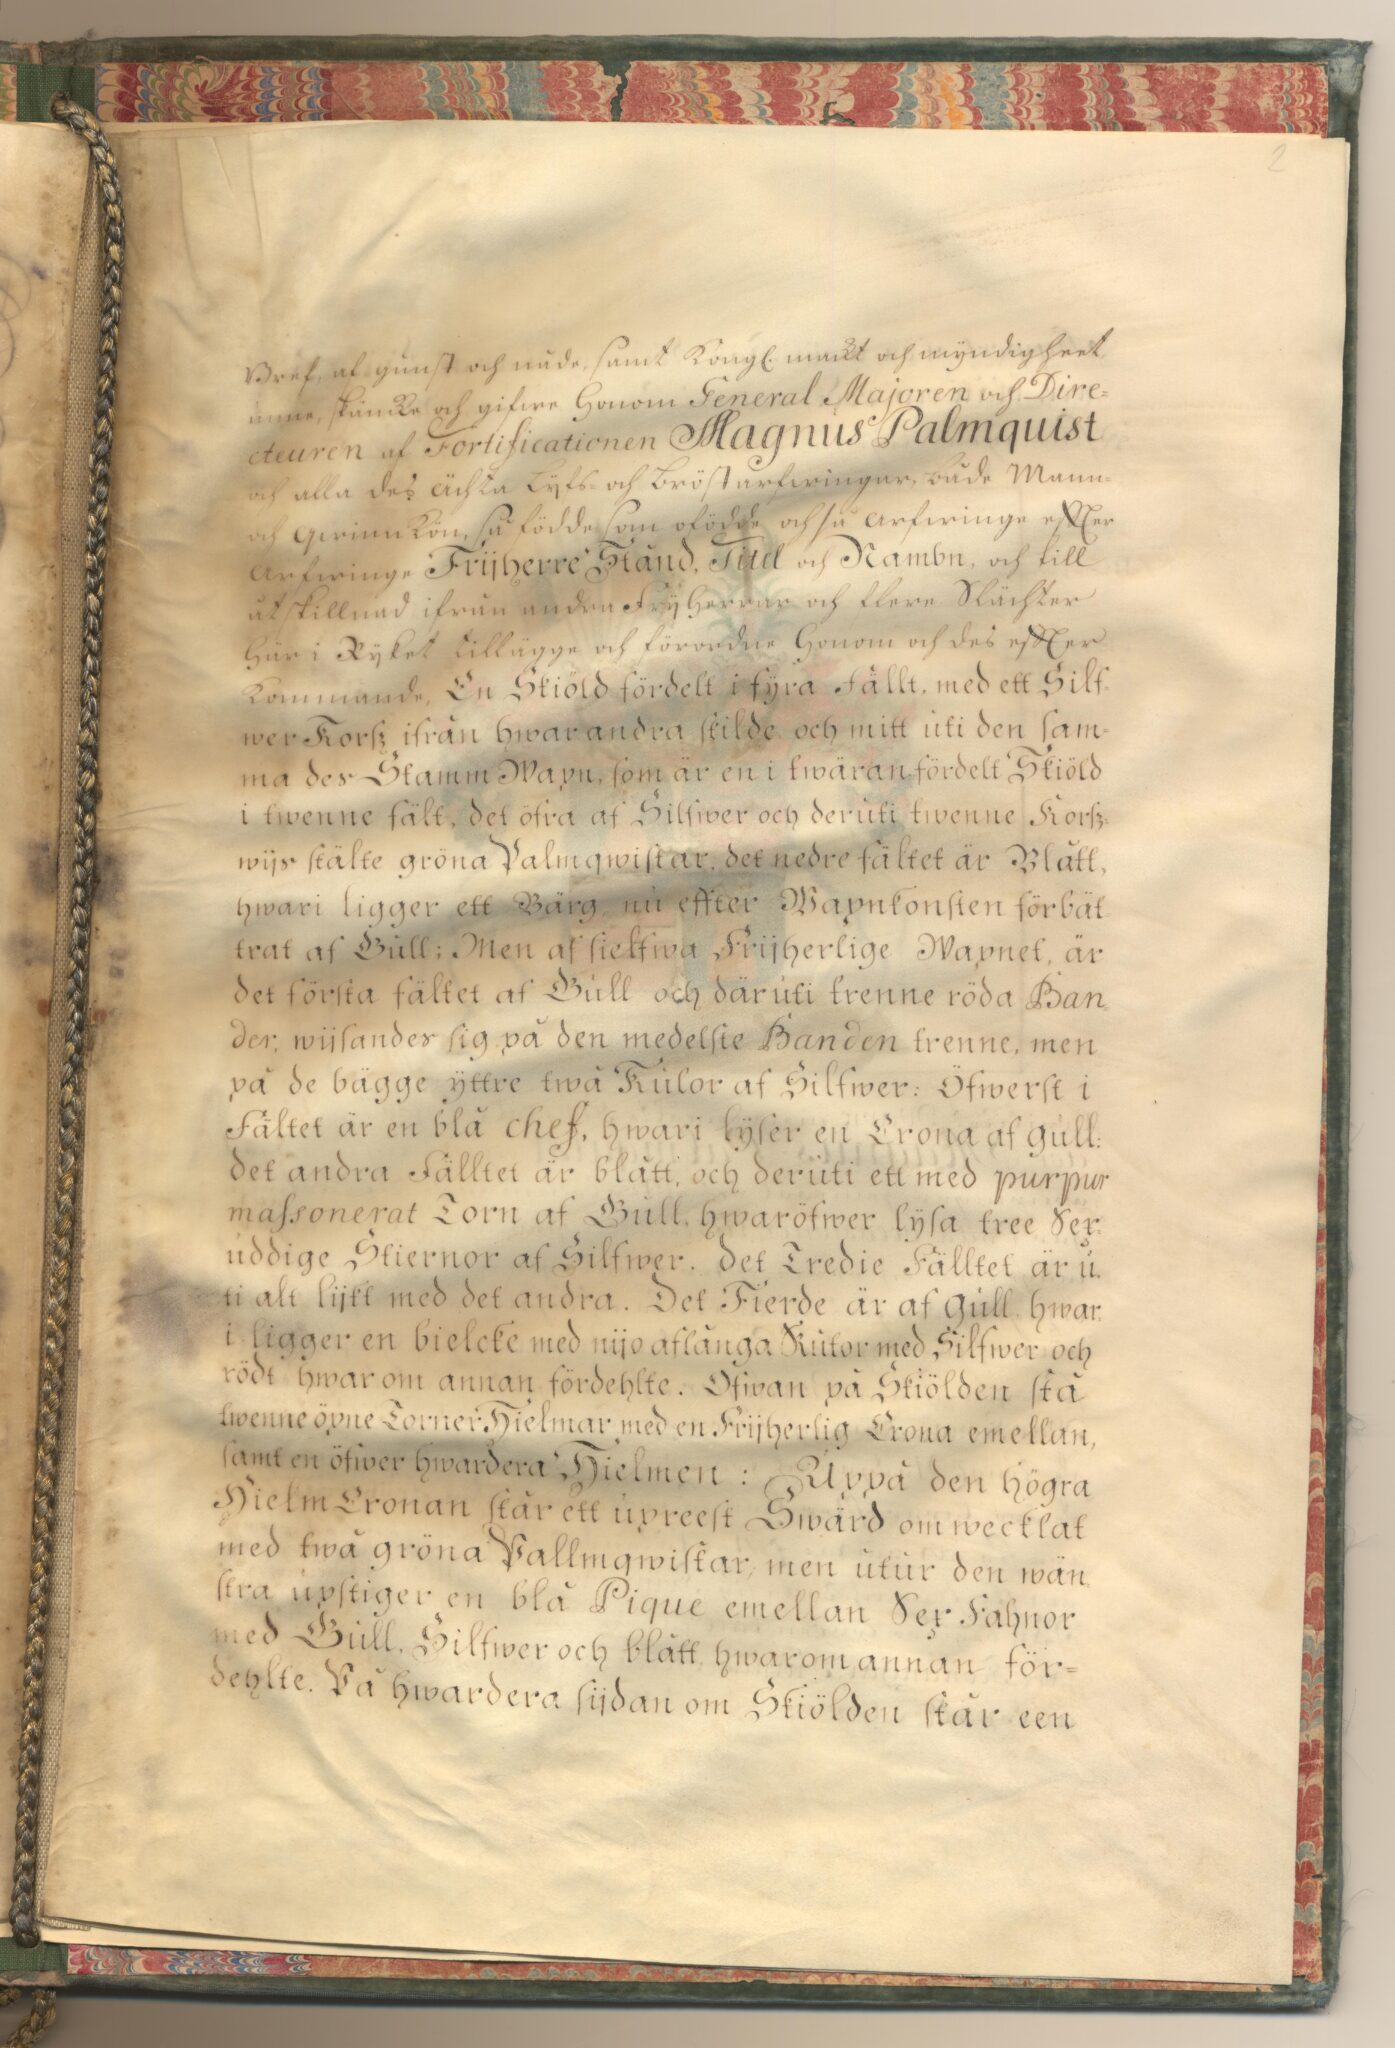 2
Bref, af gunst och nåde, samt Kongl. mackt och myndigheet
unne, skäncke och gifwe Honom General Majoren och Dire-
cteuren af Fortificationen Magnus Palmquist
och alla des ächta Lyfs- och Bröstarfwingar, både Mann-
och Qwinnkön, så födde som ofödde, och så arfwinge effter
Arfwinge Frijherre Stånd, Titel och Nambn, och till
åtskillnad ifrån andra Frÿherrar och flere Slächter
här i Ryket tillägge och förordne Honom och des effter
Kommande, En Skiöld fördelt i fÿra Fällt, med ett Silf-
wer Korsz ifrån hwarandra skilde, och mitt uti den sam-
ma des Stamm Wapn, som är en i twäran fördelt Skiöld
i twenne fält, det öfra af Silfwer och deruti twenne Korsz-
wijs stälte gröna Palmqwistar, det nedre fältet är Blått,
hwari ligger ett Bärg, nu effter Wapnkonsten förbät-
trat af Gull; Men af sielfwa Frijherlige Wapnet, är
det första fältet af Gull och däruti trenne röda Ban-
der, wijsandes sig på den medelste Banden trenne, men
på de bägge ÿttre twå Kulor af Silfwer: Öfwerst i
Fältet är en blå chef, hwari lÿser en Crona af gull:
det andra Fälltet är blått, och deruti ett med purpur
massonerat Torn af Gull, hwaröfwer lÿsa tree Sex-
uddige Stiernor af Silfwer. Det Tredie Fälltet är u-
ti alt lijkt med det andra. Det Fierde är af Gull, hwar-
i ligger en bielcke med nijo aflånga Rutor med Silfwer och
rödt hwar om annan fördehlte. Ofwan på Skiölden stå
twenne öpne Torner Hielmar med en Frijherlig Crona emellan,
samt en öfwer hwardera Hielmen: Uppå den högra
Hielm Cronan står ett upreest Swärd omwecklat
med twå gröna Pallmqwistar, men utur den wän-
stra upstiger en blå Pique emellan Sex Fahnor
med Gull, Silfwer och blått hwarom annan för-
dehlte. På hwardera sijdan om Skiölden står een